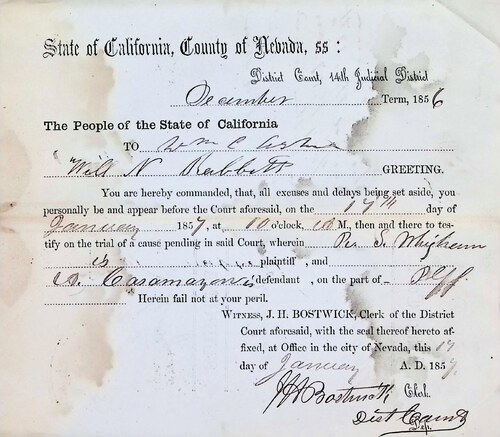 State of California, County of Nevada, ss:
District Court, 14th Judicial District
December Term, 1856
The People of the State of California
TO Wm C
Will N Rabbitt GREETING.
You are hereby commanded, that, all excuses and delays being set aside, you
personally be and appear before the Court aforesaid, on the 17th day of
January 1857, at 10 o'clock, M., then and there to tes-
tify on the trial of a cause pending in said Court, wherein S. Whigham
is plaintiff , and
defendant , on the part of Plff
Herein fail not at your peril.
WITNESS, J. H. BOSTWICK, Clerk of the District
Court aforesaid, with the seal thereof hereto af-
fixed, at Office in the city of Nevada, this 17
day of January A. D. 1857.
J H Bostwick Clerk.
Dist Court
Dep.